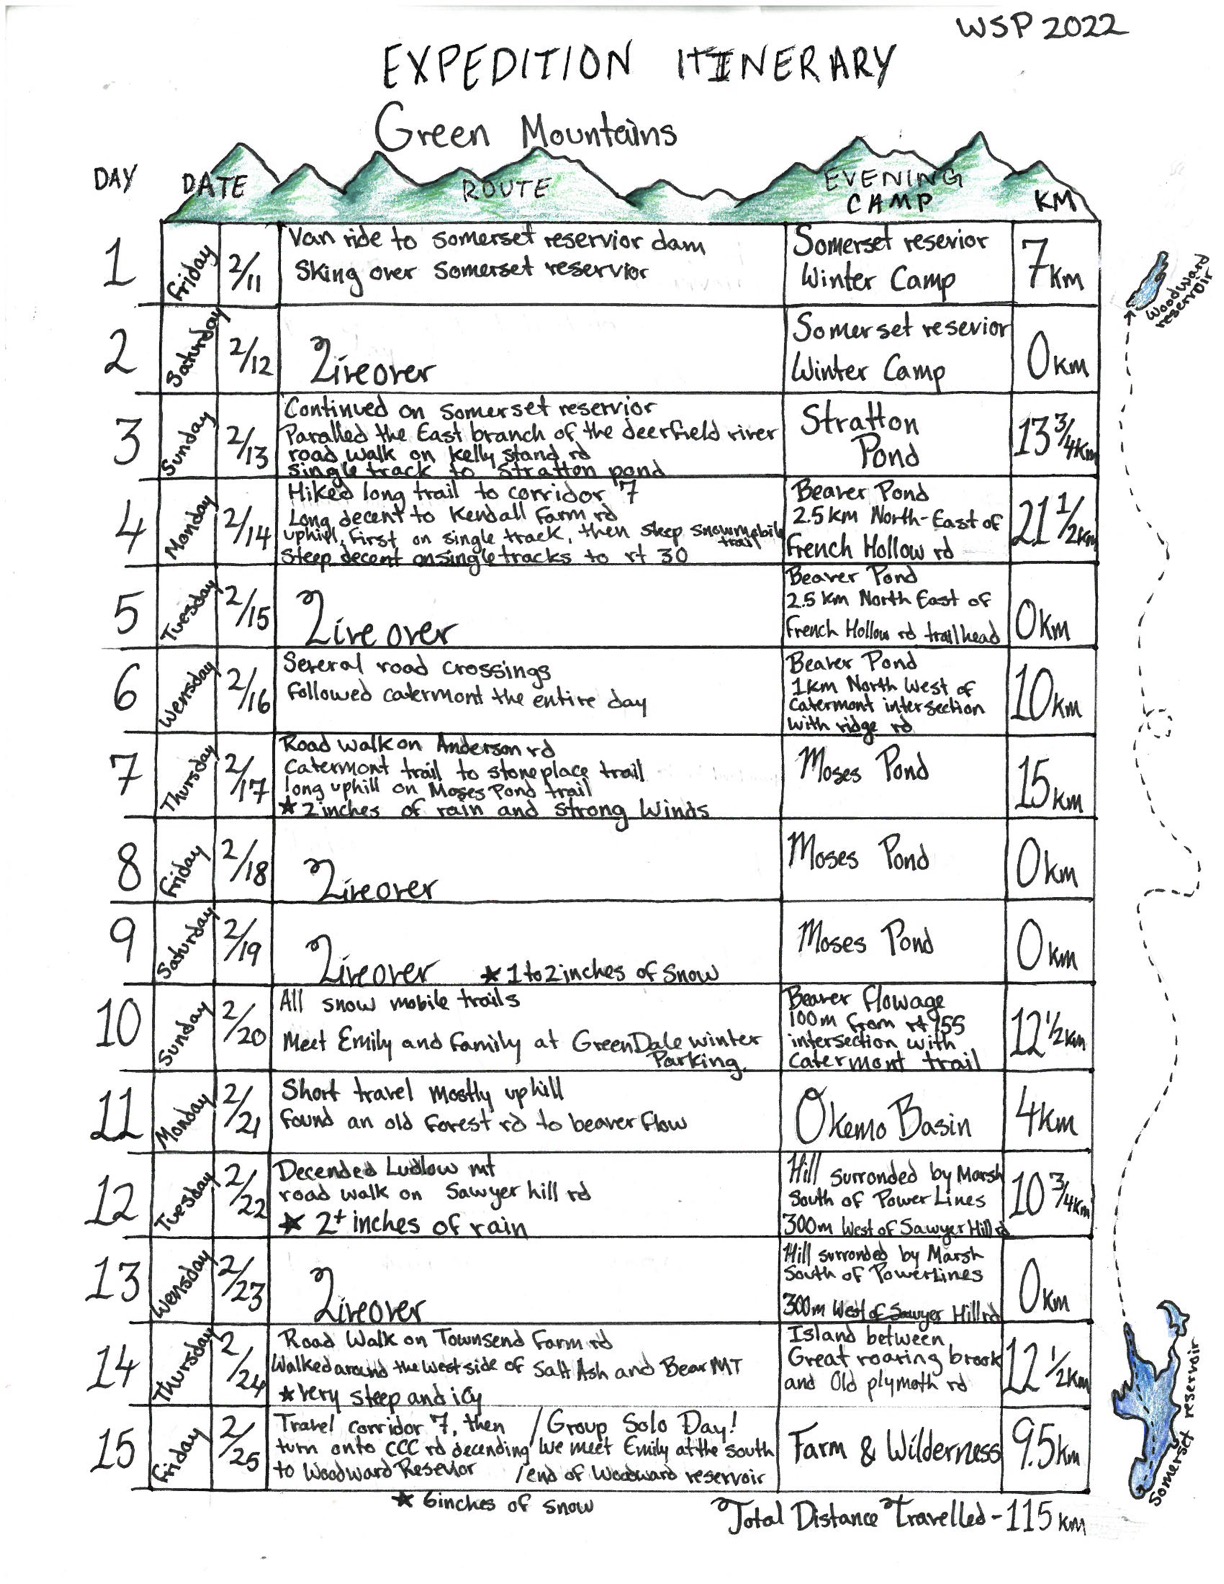 WSP 2022
EXPEDITION ITINERARY
Green Mountains
DAY DATE ROUTE EVENING CAMP KM
1 Friday 2/11
Van ride to somerset reservior dam
Sking over Somerset reservior
Somerset resevior
Winter Camp
7 km
2 Saturday 2/12
Liveover
Somerset resevior
Winter Camp
0 km
3 Sunday 2/13
Continued on Somerset reservior
Paralled the East branch of the deerfield river
road walk on kelly stand rd
single track to Stratton pond
Stratton
Pond
13 3/4 km
4 Monday 2/14
Hiked long trail to corridor 7
Long decent to Kendall Farm rd
uphill, first on single track, then steep snowmobile trail
Steep decent on single tracks to rt 30
Beaver Pond
2.5 km North-East of
French Hollow rd
21 1/2 km
5 Tuesday 2/15
Live over
Beaver Pond
2.5 km North East of
French Hollow rd trailhead
0 km
6 Wensday 2/16
Several road crossings
followed catermont the entire day
Beaver Pond
1km North West of
Catermont intersection
with ridge rd
10 km
7 Thursday 2/17
Road Walk on Anderson rd
Catermont trail to stoneplace trail
long uphill on Moses Pond trail
★ 2 inches of rain and strong Winds
Moses Pond
15 km
8 Friday 2/18
Liveover
Moses Pond
0 km
9 Saturday 2/19
Liveover ★ 1 to 2 inches of Snow
Moses Pond
0 km
10 Sunday 2/20
All snow mobile trails
Meet Emily and family at GreenDale winter
Parking
Beaver flowage
100m from rt 155
intersection with
Catermont trail
12 1/2 km
11 Monday 2/21
Short travel mostly uphill
found an old forest rd to beaver flow
Okemo Basin
4 km
12 Tuesday 2/22
Decended Ludlow mt
road walk on Sawyer hill rd
★ 2+ inches of rain
Hill surronded by Marsh
South of Power Lines
300m West of Sawyer Hill rd
10 3/4 km
13 Wensday 2/23
Liveover
Hill surronded by Marsh
South of Powerlines
300m West of Sawyer Hill rd
0 km
14 Thursday 2/24
Road Walk on Townsend Farm rd
Walked around the west side of Salt Ash and Bear MT
★ Very steep and icy
Island between
Great roaring brook
and Old plymoth rd
12 1/2 km
15 Friday 2/25
Travel corridor 7, then / Group Solo Day!
turn onto CCC rd decending / We meet Emily at the south
to Woodward Resevior / end of Woodward reservoir
Farm & Wilderness
9.5 km
★ 6 inches of snow
Total Distance Travelled - 115 km
Woodward
reservoir
Somerset reservoir